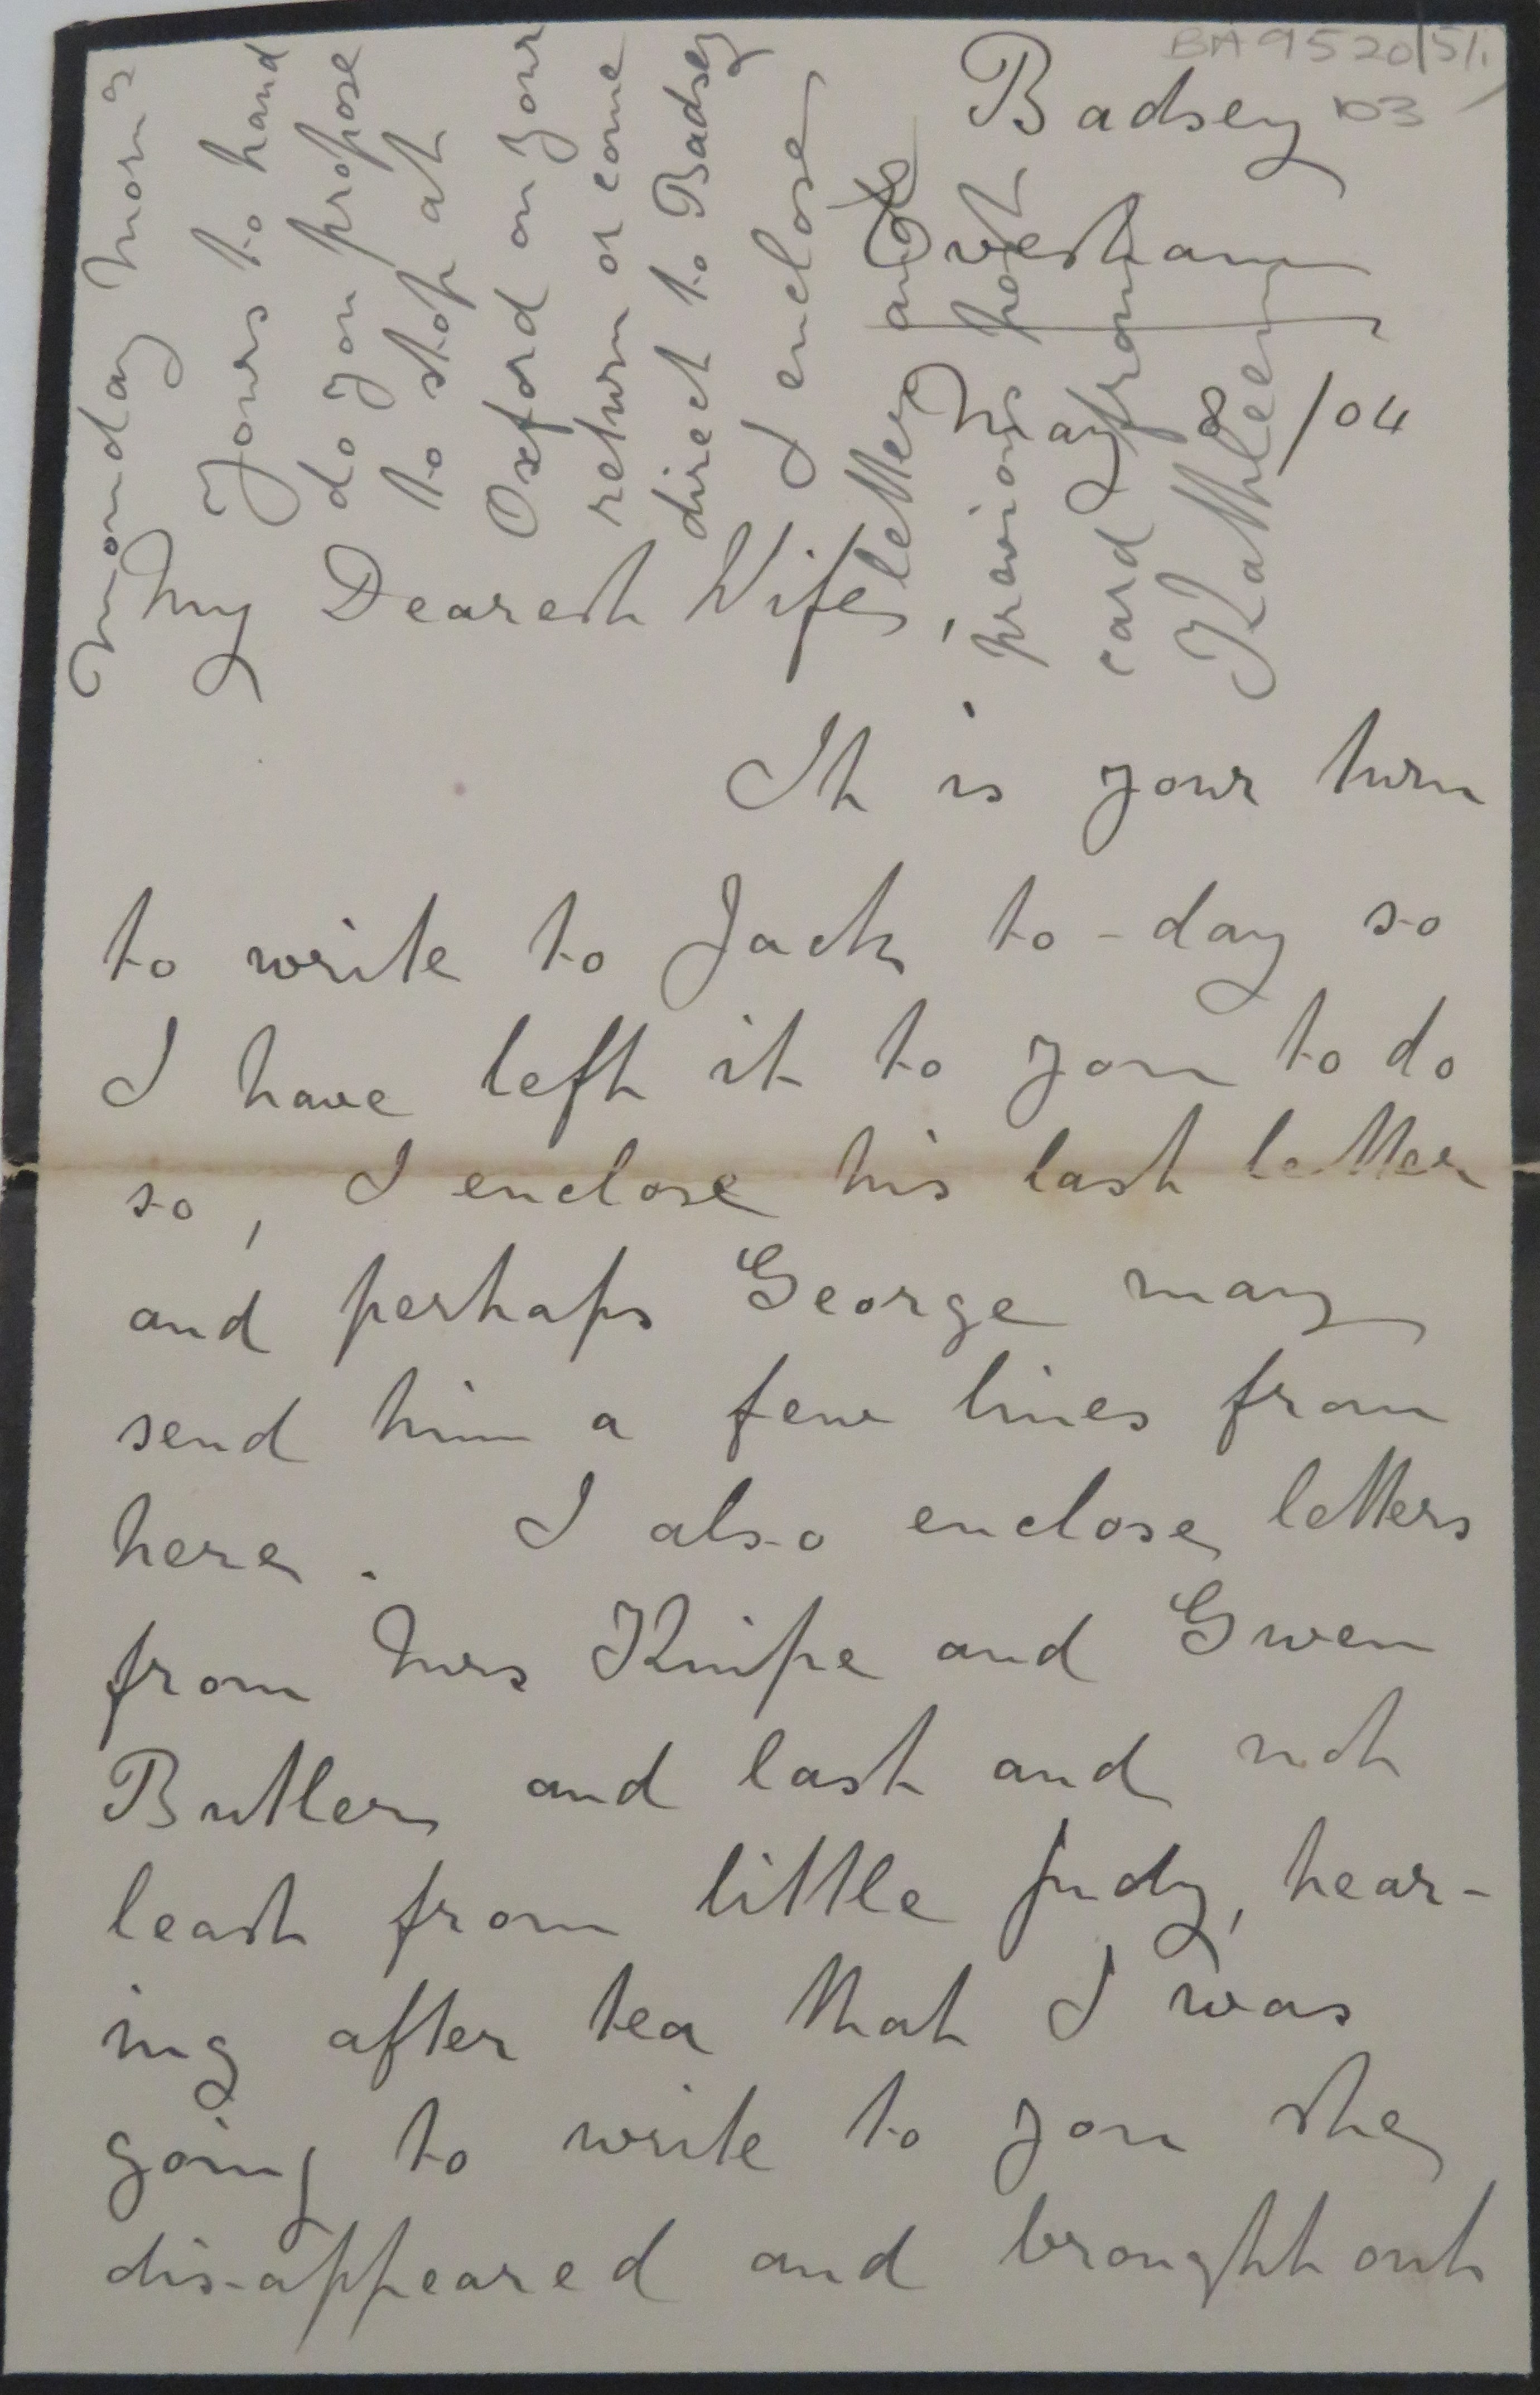 BA 9520/5/1
103
Badsey
Evesham
May 8 /04
My Dearest Wife,
It is your turn
to write to Jack to-day so
I have left it to you to do
so, I enclose his last letter
and perhaps George may
send him a few lines from
here. I also enclose letters
from Mrs Knipe and Gwen
Butler and last and not
least from little Judy, hear-
ing after tea that I was
going to write to you she
disappeared and brought out
Monday morng
Yours to hand
do you propose
to stop at
Oxford on your
return or come
direct to Badsey
I enclose
letter and
previous post
card from
Kathleen